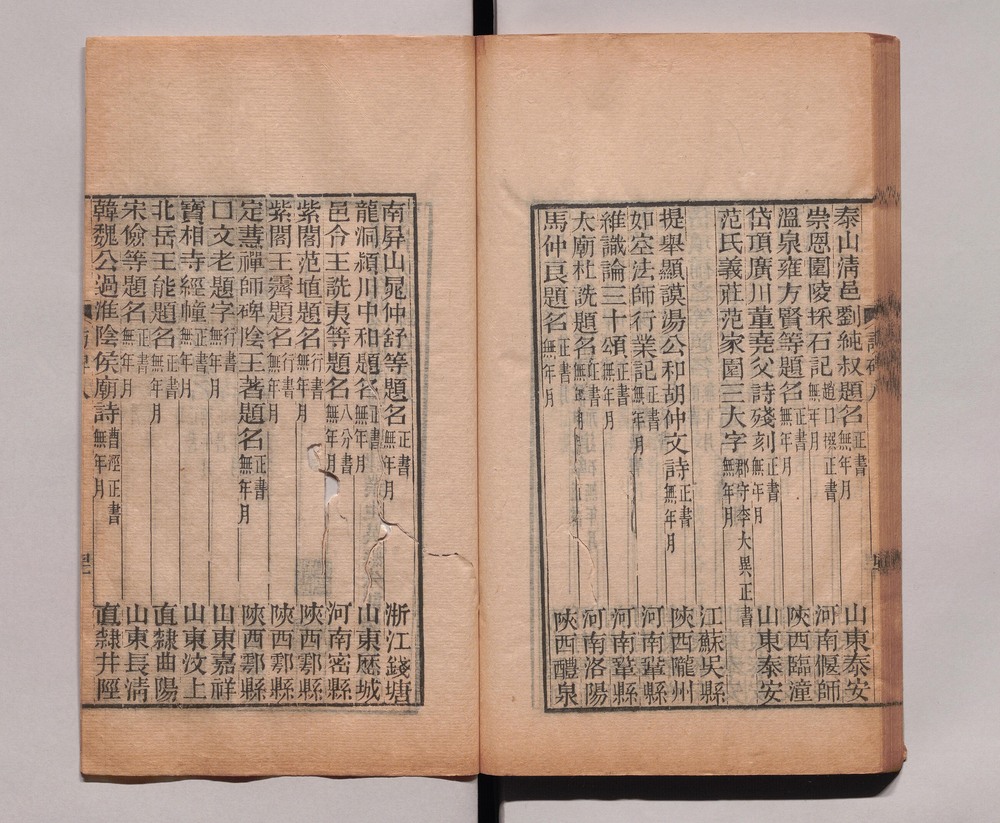 泰山淸邑劉純叔題名 正書 無年月 山東泰安
崇恩園陵採石記 趙口撰正書 無年月 河南偃師
溫泉雍方賢等題名 正書 無年月 陝西臨潼
岱頂廣川董堯父詩殘刻 正書 無年月 山東泰安
范氏義莊范家園三大字 郡守李大異正書 無年月 江蘇吳縣
提舉顯謨湯公和胡仲文詩 正書 無年月 陝西隴州
如空法師行業記 正書 無年月 河南鞏縣
維識論三十頌 正書 無年月 河南鞏縣
太廟杜詵題名 正書 無年月 河南洛陽
馬仲良題名 正書 無年月 陝西醴泉
南屏山晁仲舒等題名 正書 無年月 浙江錢塘
龍洞潁川中和題名 正書 無年月 山東歷城
邑令王詵夷等題名 八分書 無年月 河南密縣
紫閣范埴題名 行書 無年月 陝西鄠縣
紫閣王霽題名 行書 無年月 陝西鄠縣
定慧禪師碑陰王著題名 正書 無年月 陝西鄠縣
口文老題字 行書 無年月 山東嘉祥
寶相寺經幢 正書 無年月 山東汶上
北岳王能題名 正書 無年月 直隸曲陽
宋儉等題名 正書 無年月 山東長淸
韓魏公過淮陰侯廟詩 曹涇正書 無年月 直隸井陘